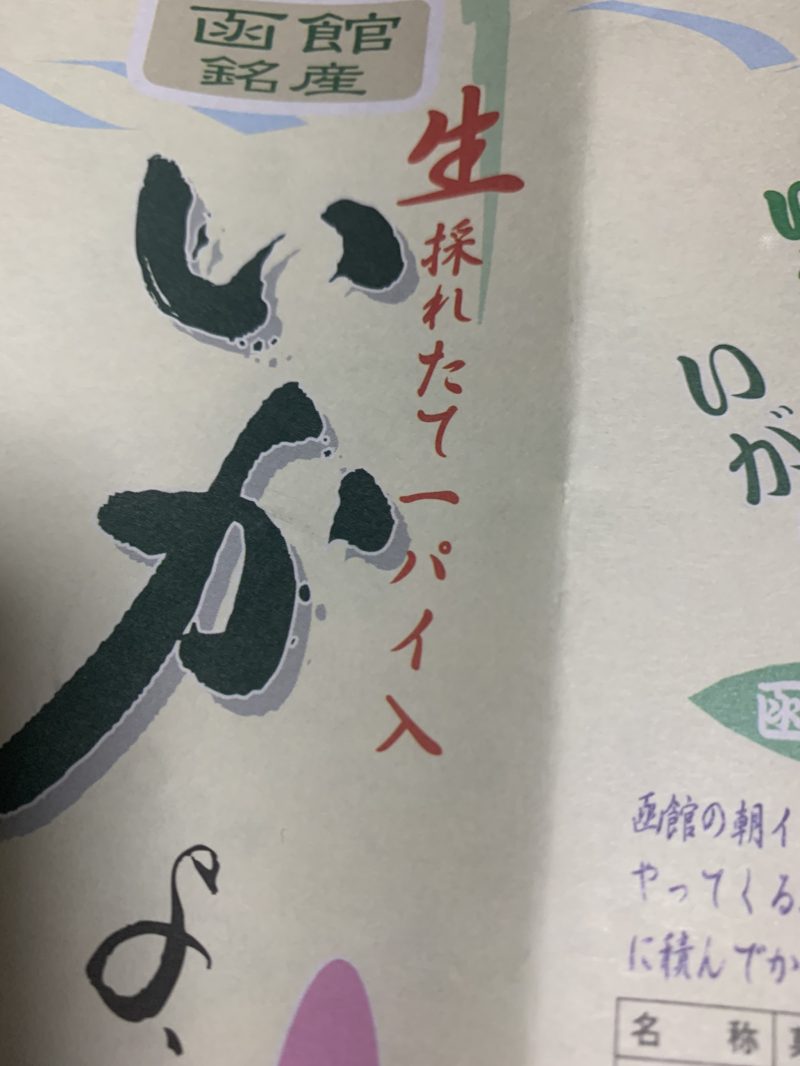 函館
銘産
生
採れたて一パイ入
いか
いが
函
函館の朝イ
やってくる
に積んでか
名称